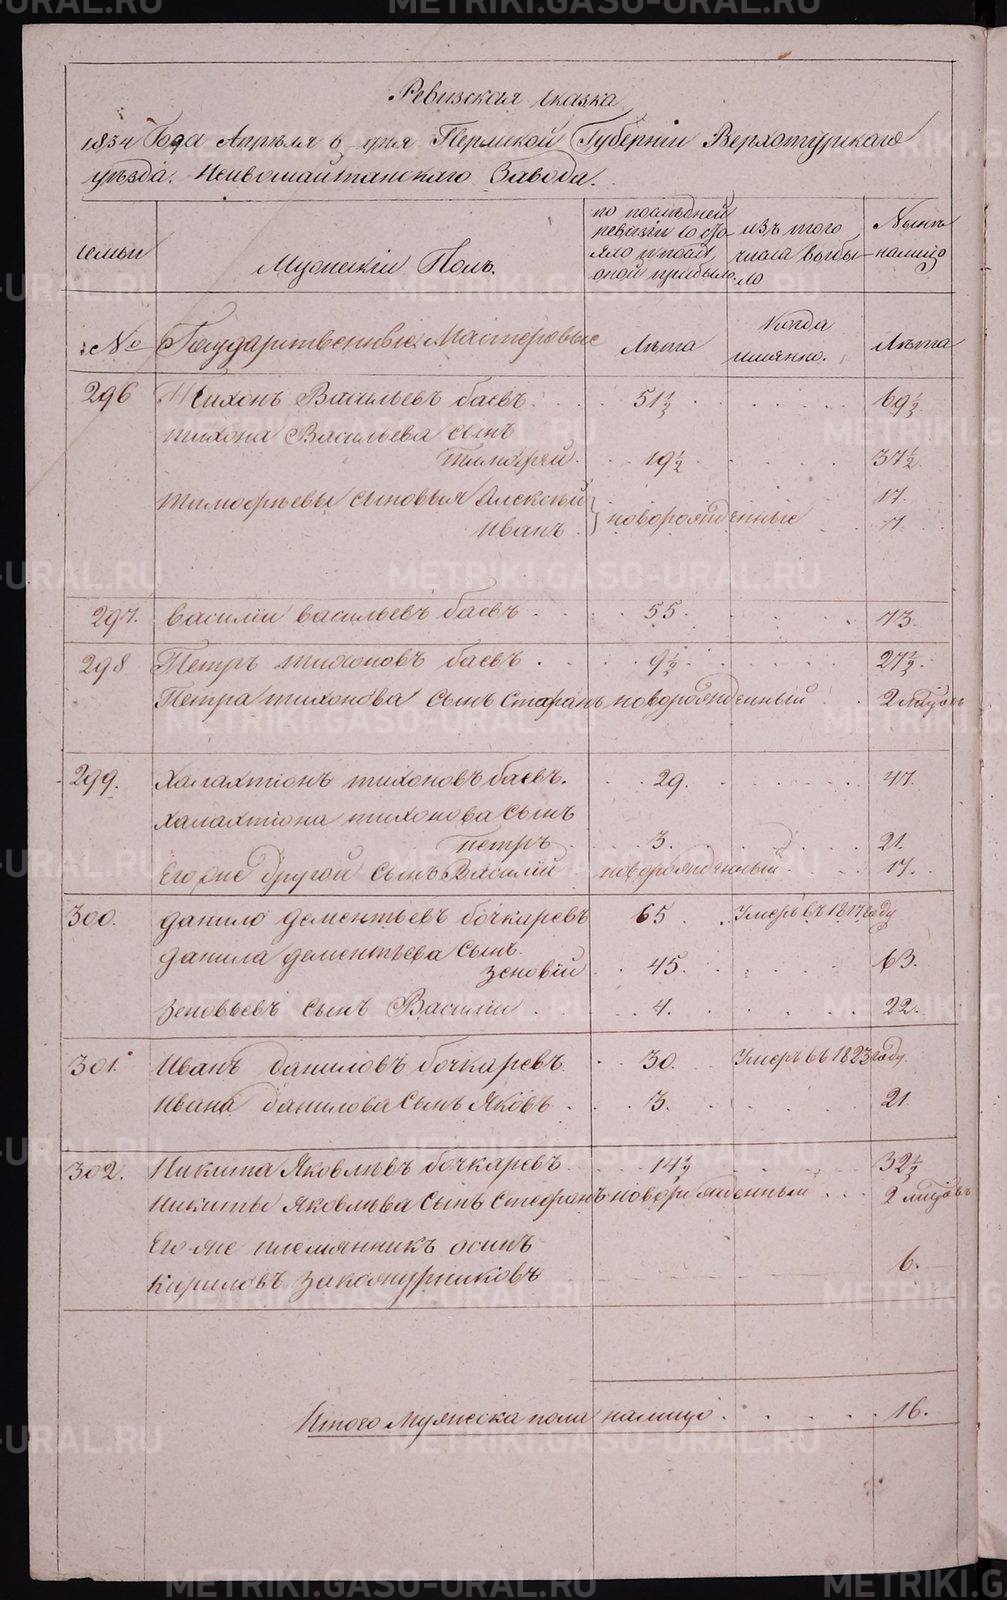 Ревизская сказка
1834 Года Апреля 6 дня Пермской Губернии Верхотурскаго
уезда. Невьомайтанскаго Завода.
семьи
Мужескій Полъ.
по последней ревизіи состояло и после оной прибыло.
изъ того числа выбыло
Ныне налицо
№
Государственные Мастеровые
Лета
Когда имянно.
Лета
296 Тихонъ Васильевъ баевъ. 51½ 69½
тихона Васильева сынъ
тимофей. 19½ 37½
тимофеевы сыновья Алексей 17.
иванъ. новорожденные 7.
297. василіи васильевъ баевъ 55 73.
298 Петръ тихоновъ баевъ 9½ 27½
Петра тихонова сынъ Стефанъ новорожденный 2 месяцовъ
299. халахтіонъ тихоновъ баевъ. 29. 47.
халахтіона тихонова сынъ
петръ 3. 21.
Его же другой сынъ Василій новорожденный 17.
300. данило дементьевъ бочкаревъ 65 Умеръ въ 1817 году
данила дементьева сынъ
зеновій 45. 63.
зеновьевъ сынъ Василіи 4. 22.
301. Иванъ даниловъ бочкаревъ 30. Умеръ въ 1823 году
ивана данилова сынъ яковъ 3. 21.
302. Никита Яковлевъ бочкаревъ 14½ 32½
никиты Яковлева сынъ Стефанъ новорожденный 2 месяцовъ
Его же племянникъ осипъ
кириловъ закожурниковъ 6.
Итого Мужеска пола налицо 16.
METRIKI.GASO-URAL.RU